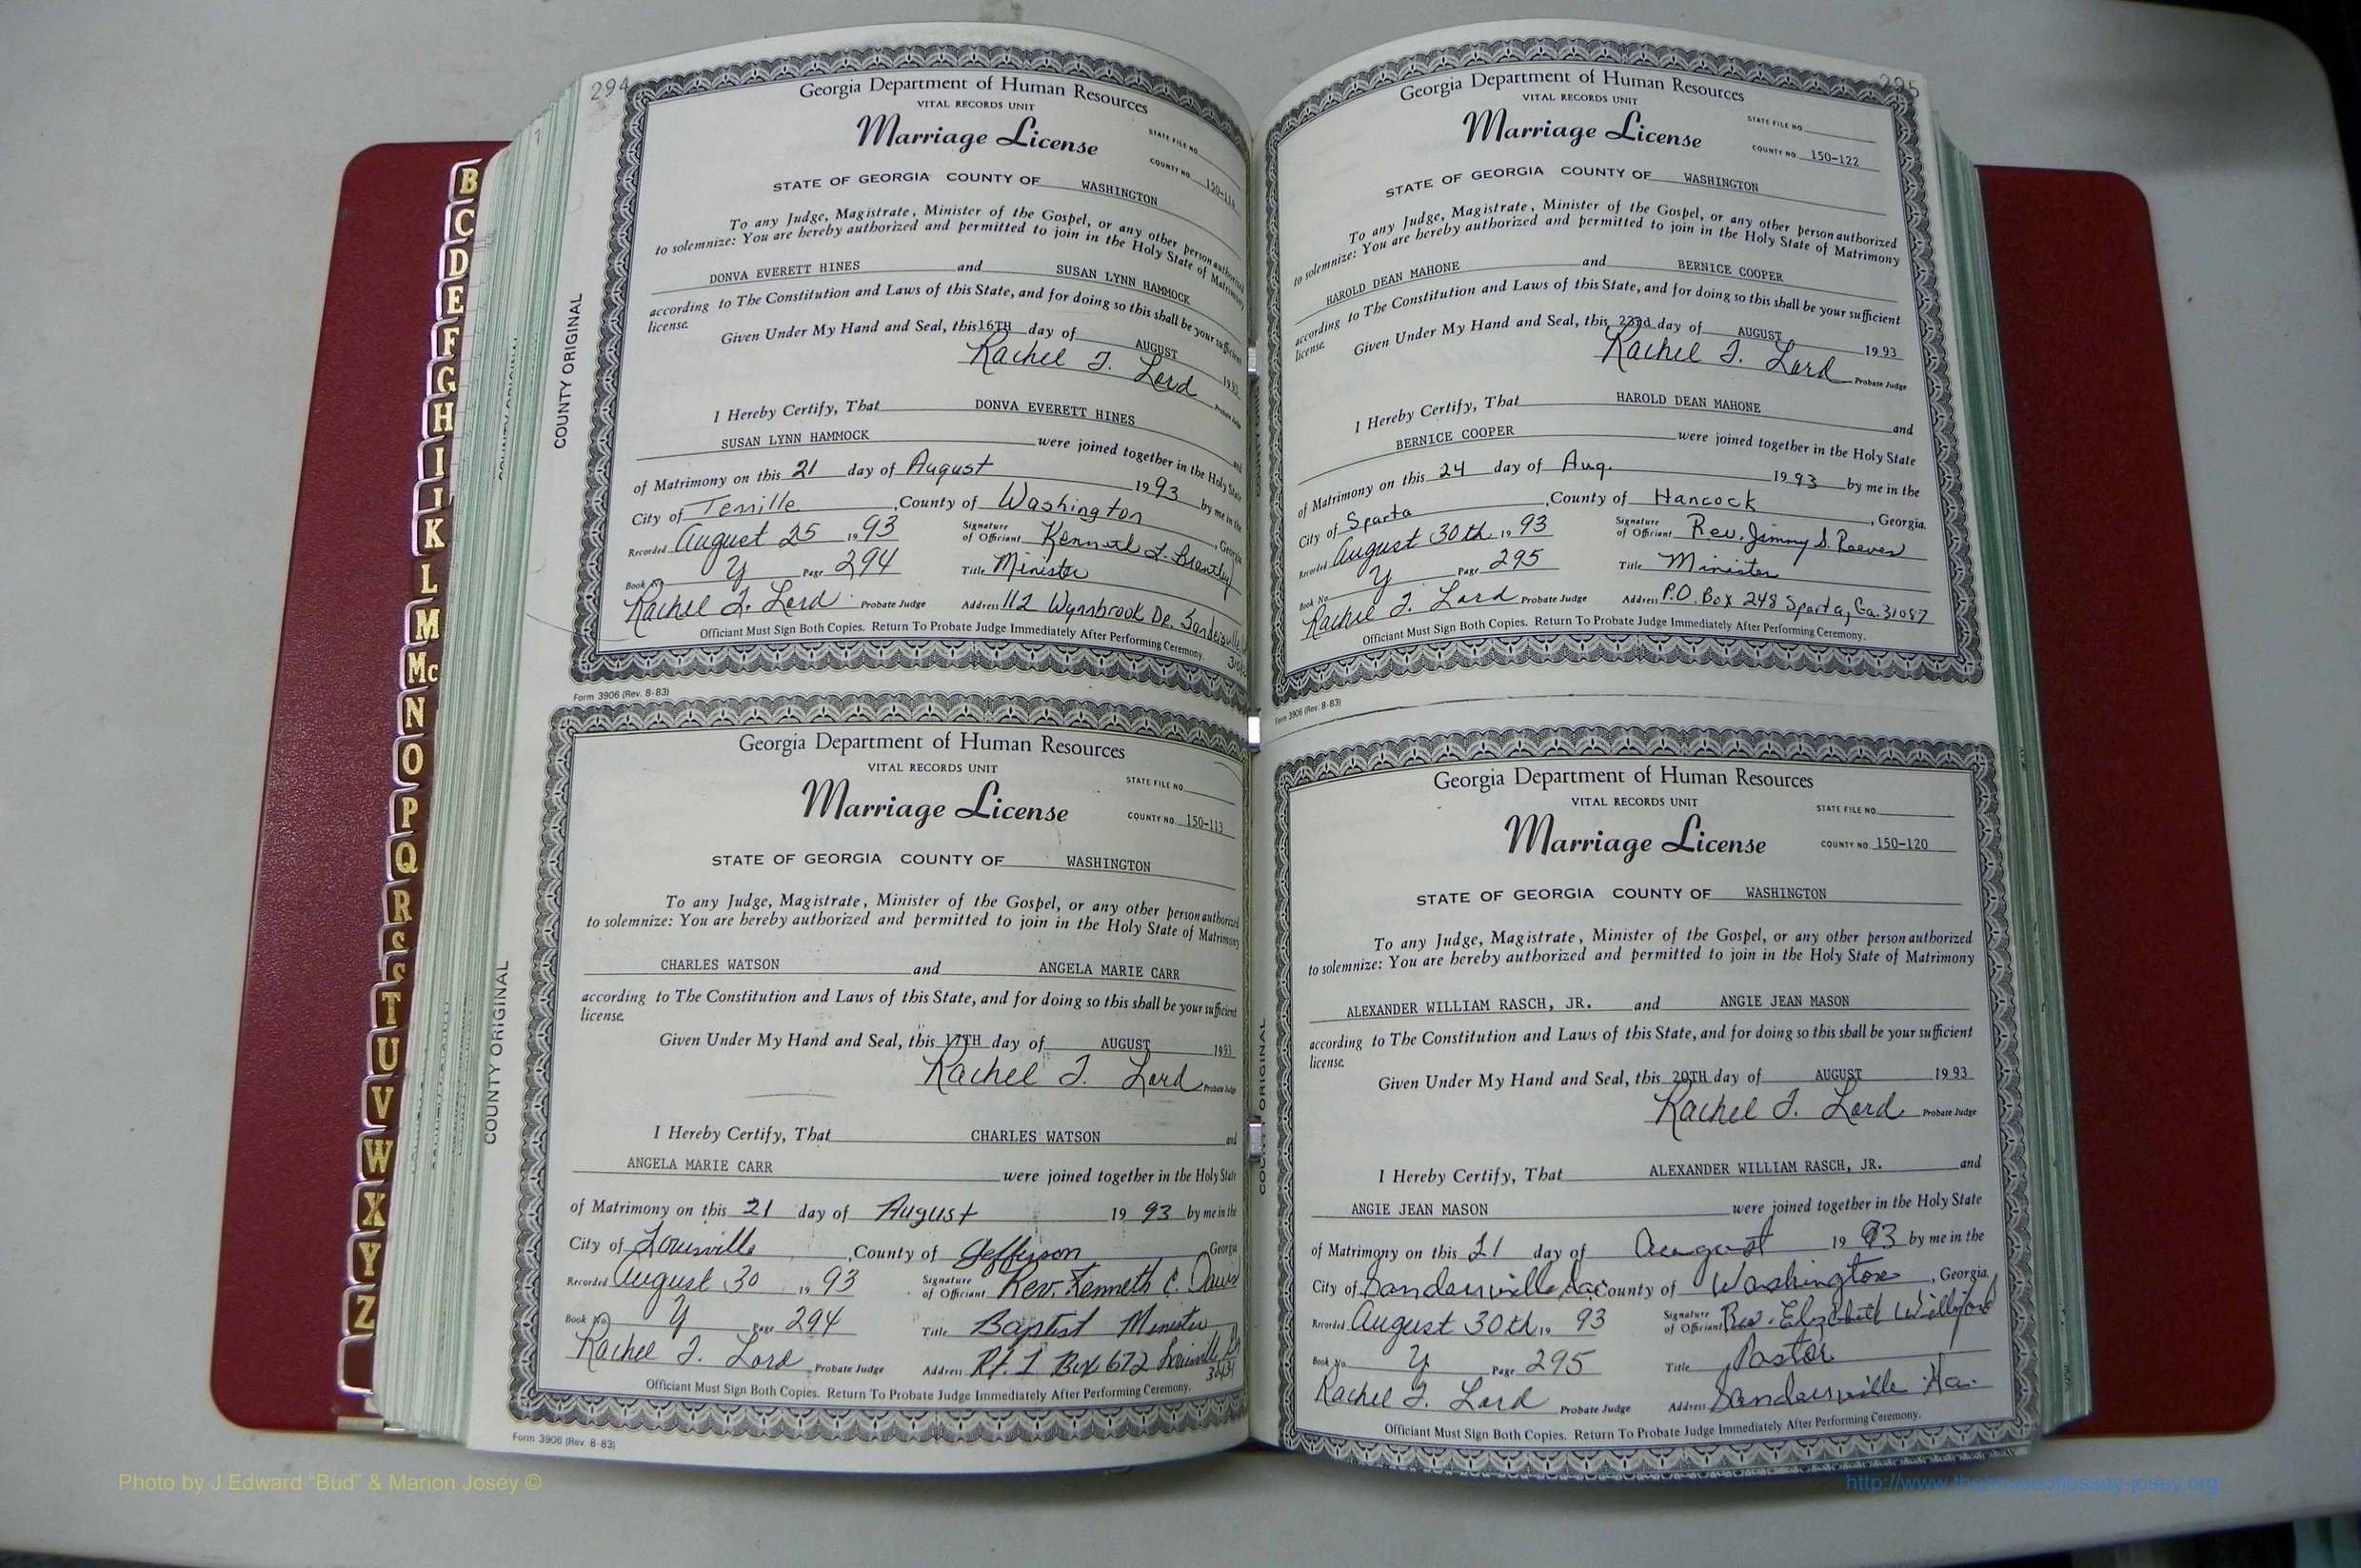 B
C
D
E
F
G
H
I
J
K
L
M
Mc
N
O
P
Q
R
S
S
T
U
V
W
X
Y
Z
294
COUNTY ORIGINAL
Georgia Department of Human Resources
VITAL RECORDS UNIT
Marriage License
STATE FILE NO.
COUNTY NO.
STATE OF GEORGIA COUNTY OF WASHINGTON
To any Judge, Magistrate, Minister of the Gospel, or any other person authorized
to solemnize: You are hereby authorized and permitted to join in the Holy State of Matrimony
DONVA EVERETT HINES and SUSAN LYNN HAMMOCK
according to The Constitution and Laws of this State, and for doing so this shall be your sufficient
license.
Given Under My Hand and Seal, this 16TH day of AUGUST 1993
Rachel T. Lord Probate Judge
I Hereby Certify, That DONVA EVERETT HINES and
SUSAN LYNN HAMMOCK were joined together in the Holy State
of Matrimony on this 21 day of August 1993 by me in the
City of Tennille, County of Washington, Georgia
Recorded August 25 1993 Signature of Officiant Kenneth L. Brantley
Book No. Y Page 294 Title Minister
Rachel T. Lord Probate Judge Address 112 Wynnbrook Dr. Sandersville
Officiant Must Sign Both Copies. Return To Probate Judge Immediately After Performing Ceremony.
Form 3906 (Rev. 8-83)
COUNTY ORIGINAL
Georgia Department of Human Resources
VITAL RECORDS UNIT
Marriage License
STATE FILE NO.
COUNTY NO. 150-113
STATE OF GEORGIA COUNTY OF WASHINGTON
To any Judge, Magistrate, Minister of the Gospel, or any other person authorized
to solemnize: You are hereby authorized and permitted to join in the Holy State of Matrimony
CHARLES WATSON and ANGELA MARIE CARR
according to The Constitution and Laws of this State, and for doing so this shall be your sufficient
license.
Given Under My Hand and Seal, this 17TH day of AUGUST 1993
Rachel T. Lord Probate Judge
I Hereby Certify, That CHARLES WATSON and
ANGELA MARIE CARR were joined together in the Holy State
of Matrimony on this 21 day of August 1993 by me in the
City of Louisville, County of Jefferson Georgia
Recorded August 30 1993 Signature of Officiant Rev. Kenneth C. Davis
Book No. Y Page 294 Title Baptist Minister
Rachel T. Lord Probate Judge Address Rt. 1 Box 672 Louisville
Officiant Must Sign Both Copies. Return To Probate Judge Immediately After Performing Ceremony.
Form 3906 (Rev. 8-83)
295
Georgia Department of Human Resources
VITAL RECORDS UNIT
Marriage License
STATE FILE NO.
COUNTY NO. 150-122
STATE OF GEORGIA COUNTY OF WASHINGTON
To any Judge, Magistrate, Minister of the Gospel, or any other person authorized
to solemnize: You are hereby authorized and permitted to join in the Holy State of Matrimony
HAROLD DEAN MAHONE and BERNICE COOPER
according to The Constitution and Laws of this State, and for doing so this shall be your sufficient
license.
Given Under My Hand and Seal, this 23rd day of AUGUST 1993
Rachel T. Lord Probate Judge
I Hereby Certify, That HAROLD DEAN MAHONE and
BERNICE COOPER were joined together in the Holy State
of Matrimony on this 24 day of Aug. 1993 by me in the
City of Sparta, County of Hancock, Georgia.
Recorded August 30th, 1993 Signature of Officiant Rev. Jimmy S. Reeves
Book No. Y Page 295 Title Minister
Rachel T. Lord Probate Judge Address P.O. Box 248 Sparta, Ga. 31087
Officiant Must Sign Both Copies. Return To Probate Judge Immediately After Performing Ceremony.
Form 3906 (Rev. 8-83)
COUNTY ORIGINAL
Georgia Department of Human Resources
VITAL RECORDS UNIT
Marriage License
STATE FILE NO.
COUNTY NO. 150-120
STATE OF GEORGIA COUNTY OF WASHINGTON
To any Judge, Magistrate, Minister of the Gospel, or any other person authorized
to solemnize: You are hereby authorized and permitted to join in the Holy State of Matrimony
ALEXANDER WILLIAM RASCH, JR. and ANGIE JEAN MASON
according to The Constitution and Laws of this State, and for doing so this shall be your sufficient
license.
Given Under My Hand and Seal, this 20TH day of AUGUST 1993
Rachel T. Lord Probate Judge
I Hereby Certify, That ALEXANDER WILLIAM RASCH, JR. and
ANGIE JEAN MASON were joined together in the Holy State
of Matrimony on this 21 day of August 1993 by me in the
City of Sandersville Ga County of Washington, Georgia.
Recorded August 30th, 1993 Signature of Officiant Rev. Elizabeth
Book No. Y Page 295 Title Pastor
Rachel T. Lord Probate Judge Address Sandersville Ga.
Officiant Must Sign Both Copies. Return To Probate Judge Immediately After Performing Ceremony.
Photo by J Edward "Bud" & Marion Josey ©
http://www.thehouseofjossey-josey.org